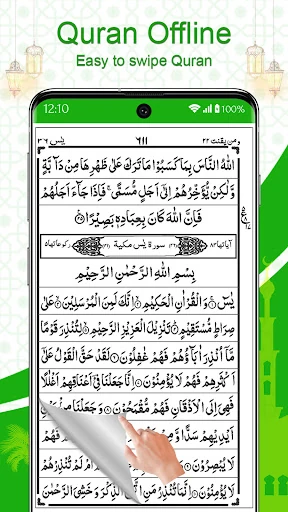 Quran Offline
Easy to swipe Quran
12:10 100%
ومن يقنت ٢٢ ٦١١ يٰسٓ ٣٦
اللّٰهُ النَّاسَ بِمَا كَسَبُوْا مَا تَرَكَ عَلٰى ظَهْرِهَا مِنْ دَآبَّةٍ
وَّلٰكِنْ يُّؤَخِّرُهُمْ اِلٰٓى اَجَلٍ مُّسَمًّى ۚ فَاِذَا جَآءَ اَجَلُهُمْ
فَاِنَّ اللّٰهَ كَانَ بِعِبَادِهٖ بَصِيْرًا
اٰياتها ٨٣ سورة يٰسٓ مكية ركوعاتها ٥
بِسْمِ اللّٰهِ الرَّحْمٰنِ الرَّحِيْمِ
يٰسٓ وَالْقُرْاٰنِ الْحَكِيْمِ اِنَّكَ لَمِنَ الْمُرْسَلِيْنَ عَلٰى
صِرَاطٍ مُّسْتَقِيْمٍ تَنْزِيْلَ الْعَزِيْزِ الرَّحِيْمِ لِتُنْذِرَ قَوْمًا
مَّآ اُنْذِرَ اٰبَآؤُهُمْ فَهُمْ غٰفِلُوْنَ لَقَدْ حَقَّ الْقَوْلُ عَلٰٓى
اَكْثَرِهِمْ فَهُمْ لَا يُؤْمِنُوْنَ اِنَّا جَعَلْنَا فِيْٓ اَعْنَاقِهِمْ اَغْلٰلًا
فَهِيَ اِلَى الْاَذْقَانِ فَهُمْ مُّقْمَحُوْنَ وَجَعَلْنَا مِنْۢ بَيْنِ
اَيْدِيْهِمْ سَدًّا
لَا يُبْصِرُوْنَ
لَا يُؤْمِنُوْنَ اِنَّمَا تُنْذِرُ مَنِ اتَّبَعَ الذِّكْرَ وَخَشِيَ الرَّحْمٰنَ